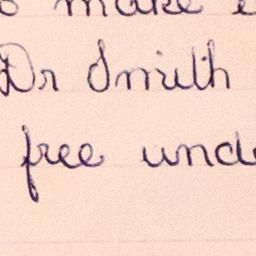 make
Dr Smith
free und